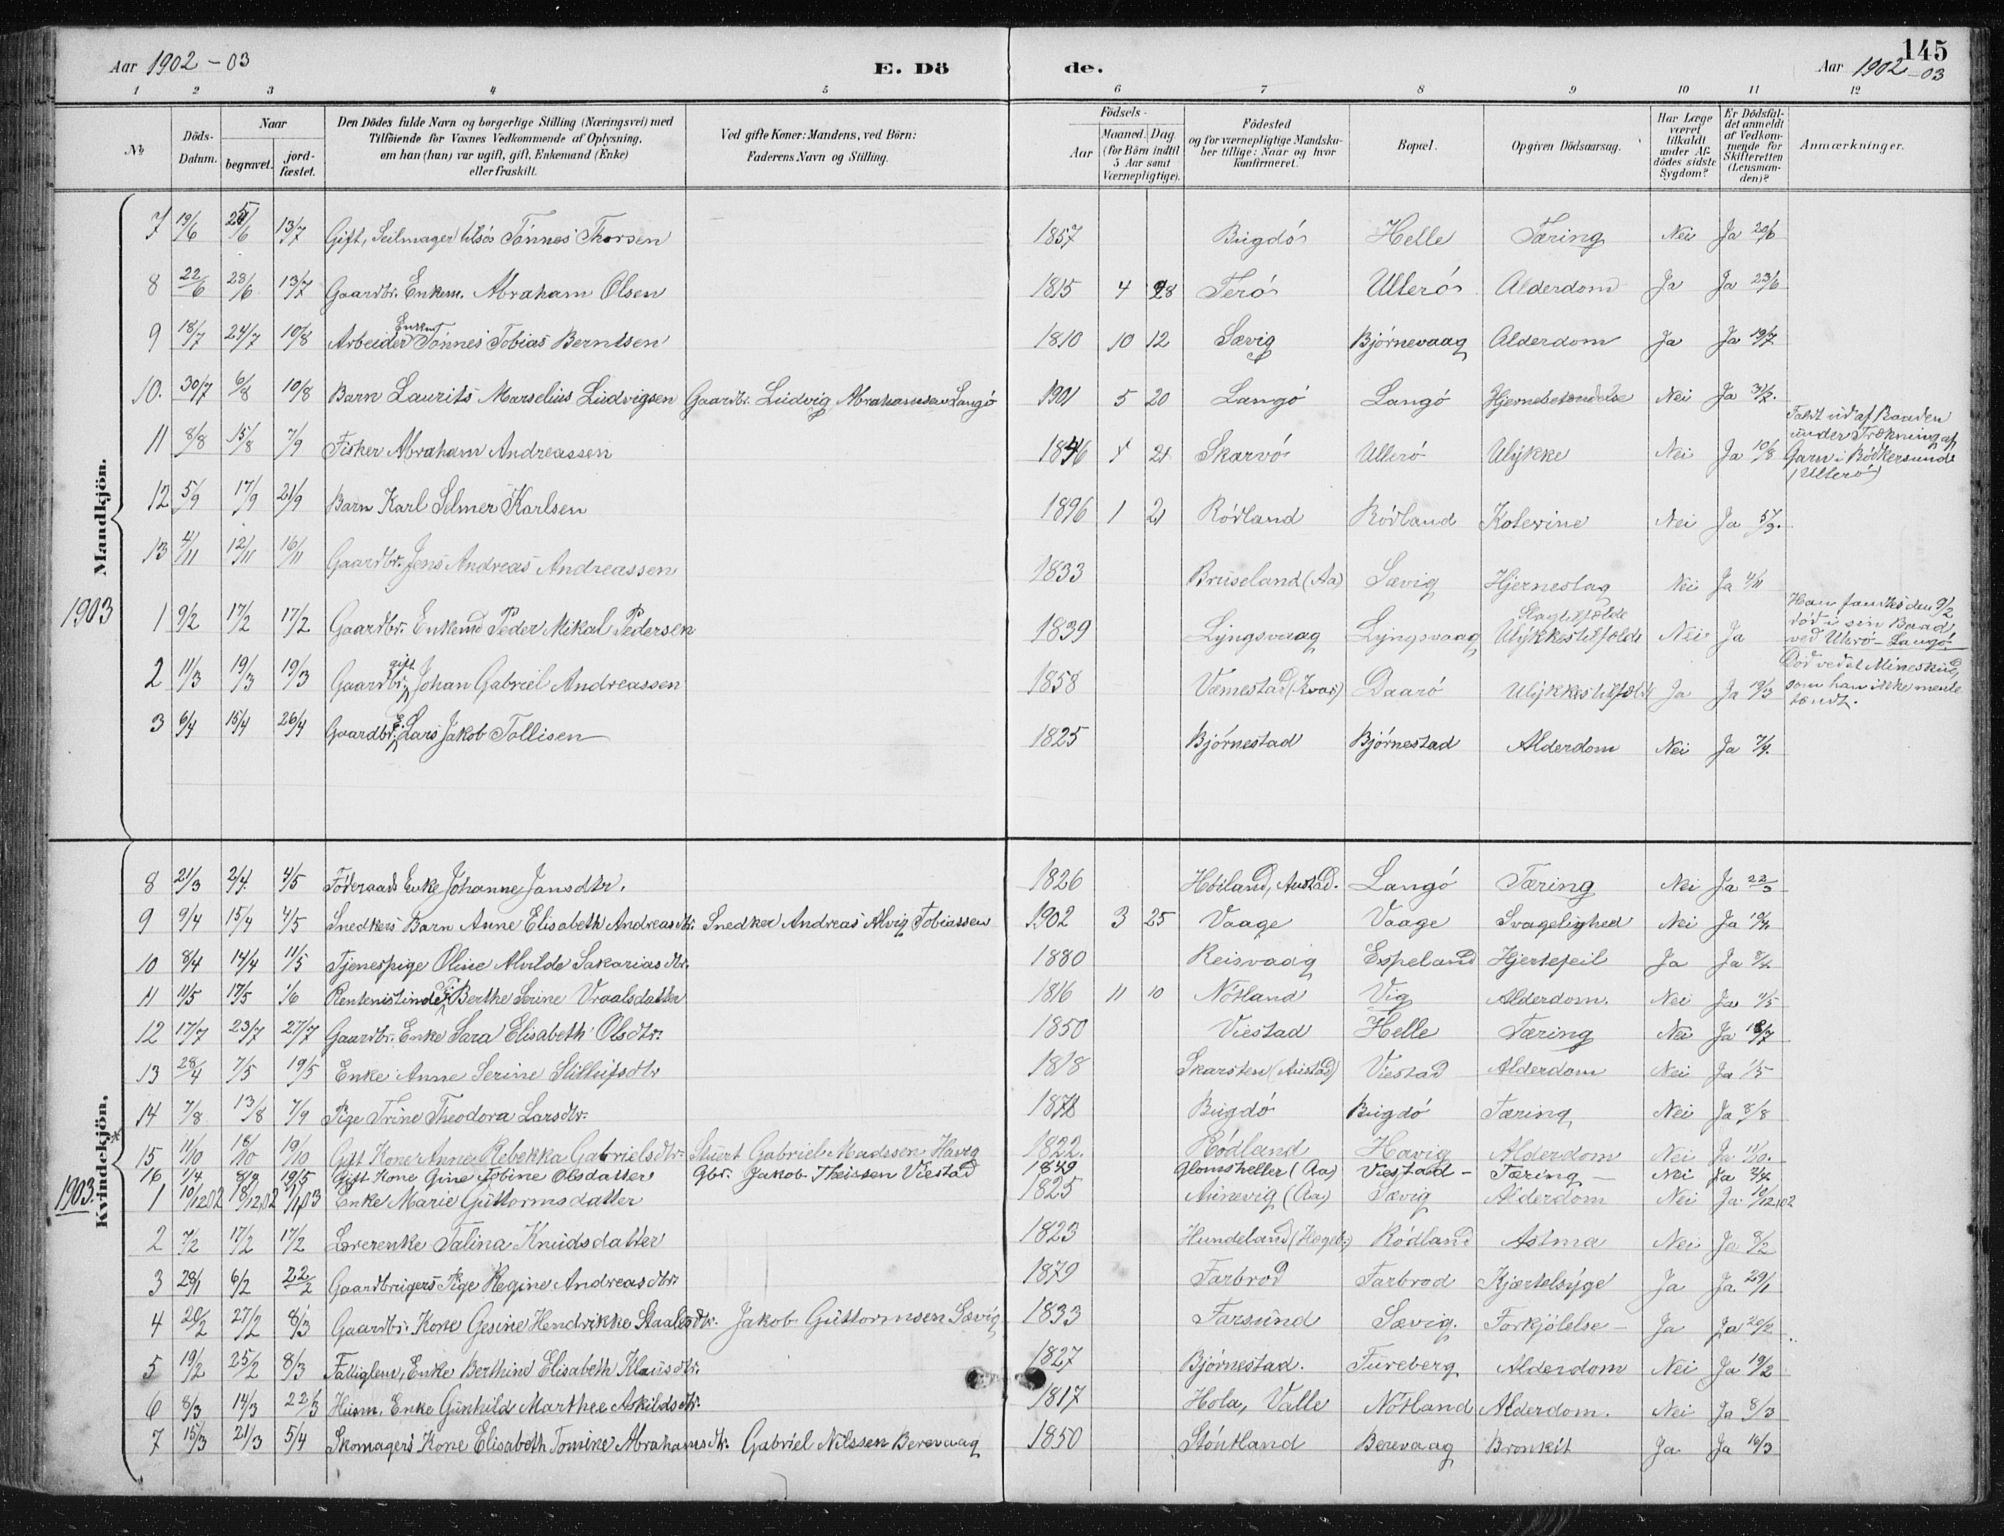 145
Aar 1902-03 E. Dö de. Aar 1902-03
1 2 3 4 5 6 7 8 9 10 11 12
No Döds-Datum. Naar begravet. jord-fæstet. Den Dödes fulde Navn og borgerlige Stilling (Næringsvei) med Tilföiende for Voxnes Vedkommende af Oplysning, om han (hun) var ugift, gift, Enkemand (Enke) eller fraskilt. Ved gifte Koner: Mandens, ved Börn: Faderens Navn og Stilling. Födsels- Aar Maaned. Dag. (for Börn indtil 5 Aar samt Værnepligtige). Födested og for værnepligtige Mandskaber tillige: Naar og hvor konfirmeret. Bopæl. Opgiven Dödsaarsag. Har Læge været tilkaldt under Afdödes sidste Sygdom? Er Dödsfaldet anmeldt af Vedkommende for Skifteretten (Lensmanden)? Anmærkninger.
Mandkjön.
7 19/6 /6 13/7 Gift, Seilmager tilsös Tönnes Thorsen 1857 Bugdö Helle Tæring Nei Ja 20/6
8 22/6 28/6 13/7 Gaardbr. Enkem. Abraham Olsen 1815 4 28 Terö Ullerö Alderdom Ja Ja 23/6
9 18/7 24/7 10/8 Arbeider Enkem Tönnes Tobias Berntsen 1810 10 12 Sævig Björnevaag Alderdom Ja Ja 19/7
10. 30/7 6/8 10/8 Barn Laurits Marselius Ludvigsen Gaardbr. Ludvig Abrahamsen Langö 1901 5 20 Langö Langö Hjernebetændelse Nei Ja 31/7.
11 8/8 15/8 7/9 Fisker Abraham Andreassen 1846 4 21 Skarvö Ullerö Ulykke Nei Ja 10/8 Faldt ud af Baaden under Trækning af Garn i Bödkersund (Ullerö)
12 5/9 17/9 21/9 Barn Karl Selmer Karlsen 1896 1 21 Rödland Rödland Kolerine Nei Ja 5/9.
13 4/11 12/11 16/11 Gaardbr. Jens Andreas Andreassen 1833 Bruseland (Aa) Sævig Hjerneslag Nei Ja 4/11
1903 1 9/2 17/2 17/2 Gaardbr. Enkemd Peder Mikal Pedersen 1839 Lyngsvaag Lyngsvaag Slagtilfælde Ulykkestilfælde Nei Ja Han fandtes den 9/2 död i sin Baad ved Ulerö-Langö
2 11/3 19/3 19/3 Gaardbr. gift Johan Gabriel Andreassen 1858 Væmestad (Kvas) Daarö Ulykkestilfælde Ja Ja 12/3 Död ved et Mineskud, som han ikke mente tændt.
3 6/4 15/4 26/4 Gaardbr. E. Lars Jakob Tollisen 1825 Björnestad Björnestad Alderdom Nei Ja 7/4.
Kvindekjön.
8 21/3 2/4. 4/5 Föderaads Enke Johanne Jansdtr. 1826 Höiland, Austad. Langö Tæring Nei Ja 22/3
9 9/4 15/4 4/5 Snedkers Barn Anne Elisabeth Andreasdtr. Snedker Andreas Alvig Tobiassen 1902 3 25 Vaage Vaage Svagelighed Nei Ja 10/4
10 8/4 14/4 11/5 Tjenestpige Oline Alvilde Sakariasdtr. 1880 Reisvaag Espeland Hjertefeil Ja Ja 8/4
11 11/5 17/5 1/6 Rentenistinde Berthe Serine Vraalsdatter 1816 11 10 Nötland Vig Alderdom. Nei Ja /5
12 17/7 23/7 27/7 Gaardbr. Enke Sara Elisabeth Olsdtr. 1850 Viestad Helle Tæring Nei Ja 18/7
13 28/4 7/5 19/5 Enke Anne Serine Stillufsdtr 1818 Skarsten (Austad) Viestad Alderdom Nei Ja 1/5
14 7/8 13/8 7/9 Pige Trine Theodora Larsdtr. 1878 Bugdö Bugdö Tæring Nei Ja 8/8
15 11/10 18/10 19/10 Gift Kone Anne Rebekka Gabrielsdtr. Stuert Gabriel Madssen Havig 1822. Rödland Havig Alderdom Nei Ja 11/10.
16 1/4 8/4 19/5 Gift Kone Gine Jobine Olsdatter Gbr. Jakob Theissen Viestad 1849 Glomsheller (Aa) Viestad - Tæring - Nei Ja 2/4
1903. 1 10/12.02 18/12.02 1/1.03 Enke Marie Guttormsdatter 1825 Aunevig (Aa) Sævig Alderdom Nei Ja 10/12.02
2 7/2 17/2 17/2 Lærerenke Talina Knudsdatter 1823 Hundeland (Hægeb.) Rödland Astma Nei Ja 8/2
3 28/1 6/2 22/2 Gaardbrugers Pige Regine Andreasdtr. 1879 Farbrod Farbrod Kjærtelsyge Ja Ja 29/1
4 20/2 27/2 8/3 Gaardbr. Kone Gesine Hendrikke Staalesdtr. Jakob Guttormsen Sævig 1833 Farsund Sævig. Forkjölelse - Ja Ja 20/2
5 19/2 25/2 8/3 Fattiglem, Enke Berthine Elisabeth Klausdtr. 1827 Björnestad. Fureberg Alderdom Nei Ja 19/2
6 8/3 14/3 22/3 Husm. Enke Gunhild Marthee Askildsdtr. 1817 Hola, Valle Nötland Alderdom. Nei Ja 8/3
7 15/3 21/3 5/4 Skomagers Kone Elisabeth Tomine Abrahamsdtr. Gabriel Nilssen Berevaag 1850 Stöutland Berevaag Bronkit Ja Ja 16/3